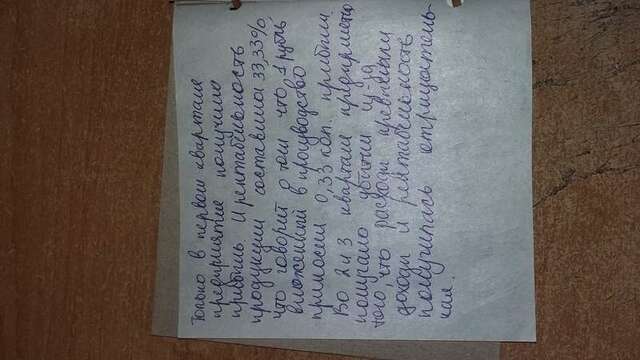 Только в первом квартале
предприятие получило
прибыль и рентабельность
продукции составила 33,33%
что говорит о том что 1 рубль
вложенный в производство
приносил 0,33 коп прибыли.
Во 2 и 3 квартали предприятие
получало убытки из-за
того, что расходы превышали
доходы и рентабельность
получилась отрицатель-
ная.